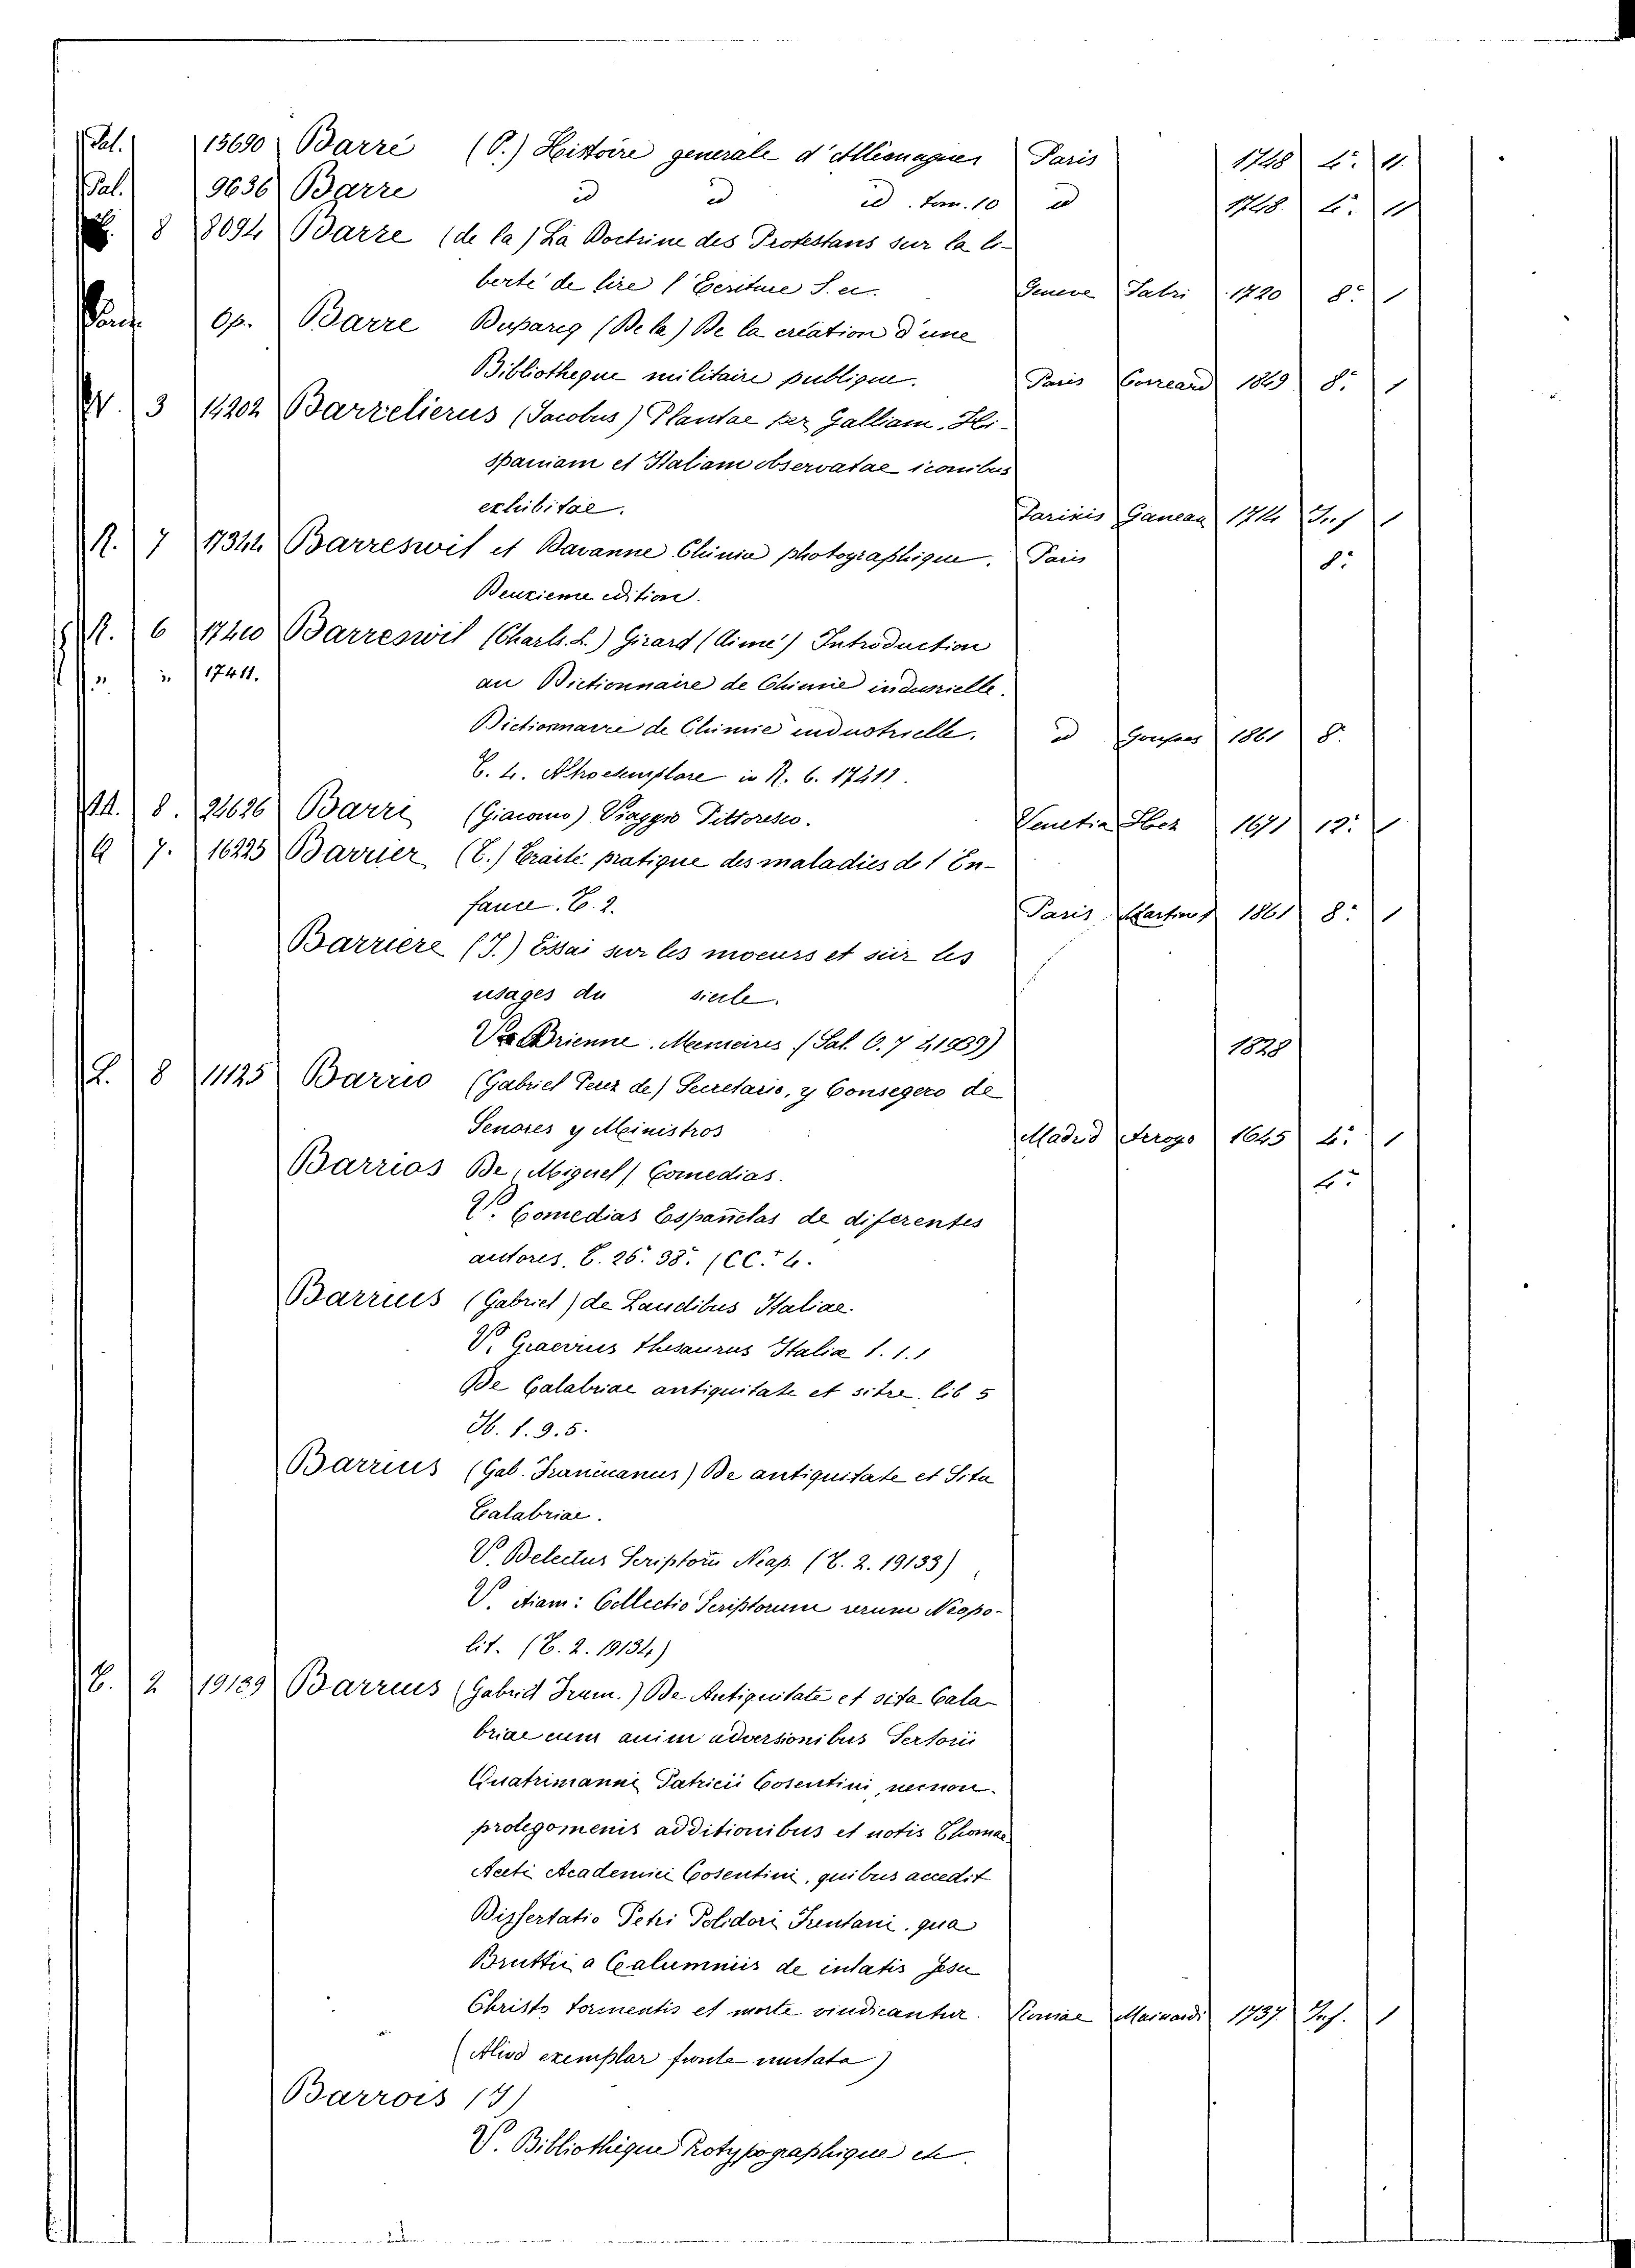 Pal. 15690 Barré (P.) Histoire generale d'Allemagnes Paris 1748 4.° 11.
Pal. 9636 Barre id id id. tom. 10 id 1748. 4.° 11
8 8094 Barre (de la) La Doctrine des Protestans sur la li-
berté de lire l'Ecriture S. Geneve Fabri 1720 8.° 1
Op. Barre Duparcq (De la) De la création d'une
Bibliotheque militaire publique. Paris Correard 1849 8.° 1
3 14202 Barrelierus (Jacobus) Plantae per Galliam, Hi-
spaniam et Italiam observatae iconibus
exhibitae. Parisiis Ganeau 1714 Inf 1
R. 7 17344 Barreswil et Davanne Chimie photographique. Paris 8.°
Deuxieme edition.
R. 6 17410 Barreswil (Charl. L.) Girard (Aimé) Introduction
" " 17411. au Dictionnaire de Chimie industrielle.
Dictionnaire de Chimie industrielle. id 1861 8.
T. 4. Altro exemplare in R. 6. 17411.
8. 24626 Barri (Giacomo) Viaggio Pittoresco. Venetia Herz 1671 12.° 1
Q 7. 16225 Barrier (E.) Traité pratique des maladies de l'En-
fance. T. 2. Paris 1861 8.° 1
Barriere (F.) Essai sur les moeurs et sur les
usages du siecle.
V. Brienne. Memoires (Sal. C. 7 21989) 1828
L. 8 11125 Barrio (Gabriel Perez de) Secretario, y Consegero de
Senores y Ministros Madrid 1645 4.° 1
Barrios De, Miguel) Comedias. 4.°
V. Comedias Españolas de diferentes
autores. T. 26.° 38.° (CC.° 4.
Barrius (Gabriel) de Laudibus Italiae.
V. Graevius thesaurus Italiae t. 1. 1
De Calabriae antiquitate et sitre. lib 5
Ib. t. 9. 5.
Barrius (Gab. Francicanus) De antiquitate et Situ
Calabriae.
V. Delectus Scriptorũ Neap. (T. 2. 19133)
V. etiam: Collectio Scriptorum rerum Neapo-
lit. (T. 2. 19134)
T. 2 19129 Barrius (Gabriel Fram.) De Antiquitate et situ Cala-
briae cum anim adversionibus Sertorii
Quatrimanni Patricii Cosentini, necnon
prolegomenis additionibus et notis Thomae
Aceti Academici Cosentini, quibus accedit
Dissertatio Petri Polidori Frentani, qua
Bruttii a Calumniis de inlatis Jesu
Christo tormentis et morte vindicantur. Romae Mainardi 1737 Inf. 1
(Aliud exemplar fronte mutata)
Barrois (J)
V. Bibliothéque Protypographique etc.